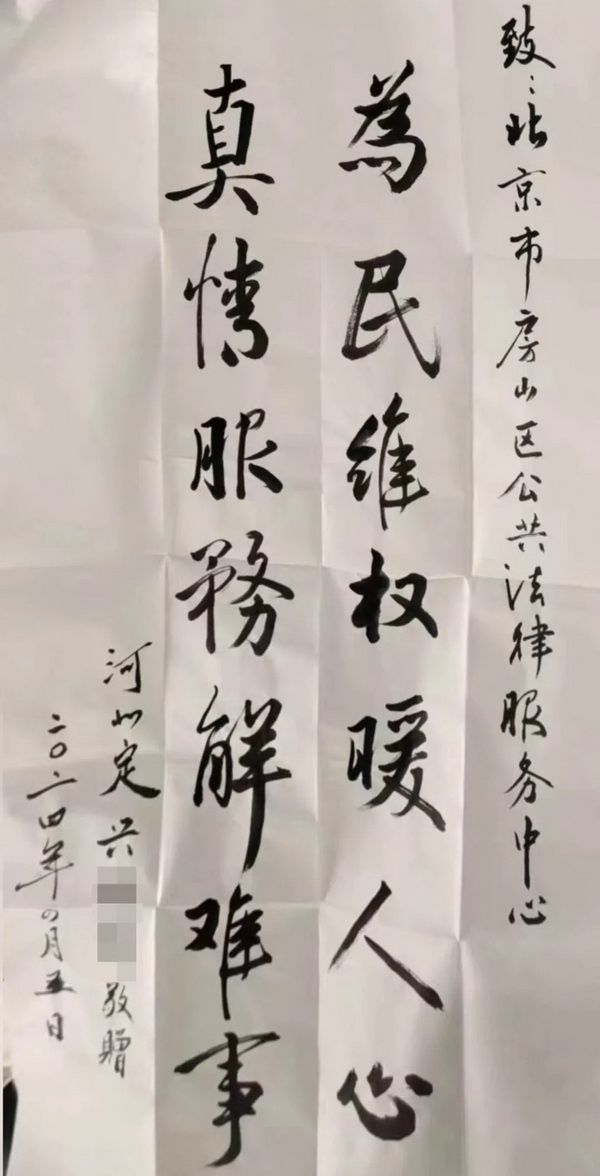 致：北京市房山区公共法律服务中心
為民维权暖人心
真情服務解难事
河北定兴 敬赠
二〇二四年四月五日